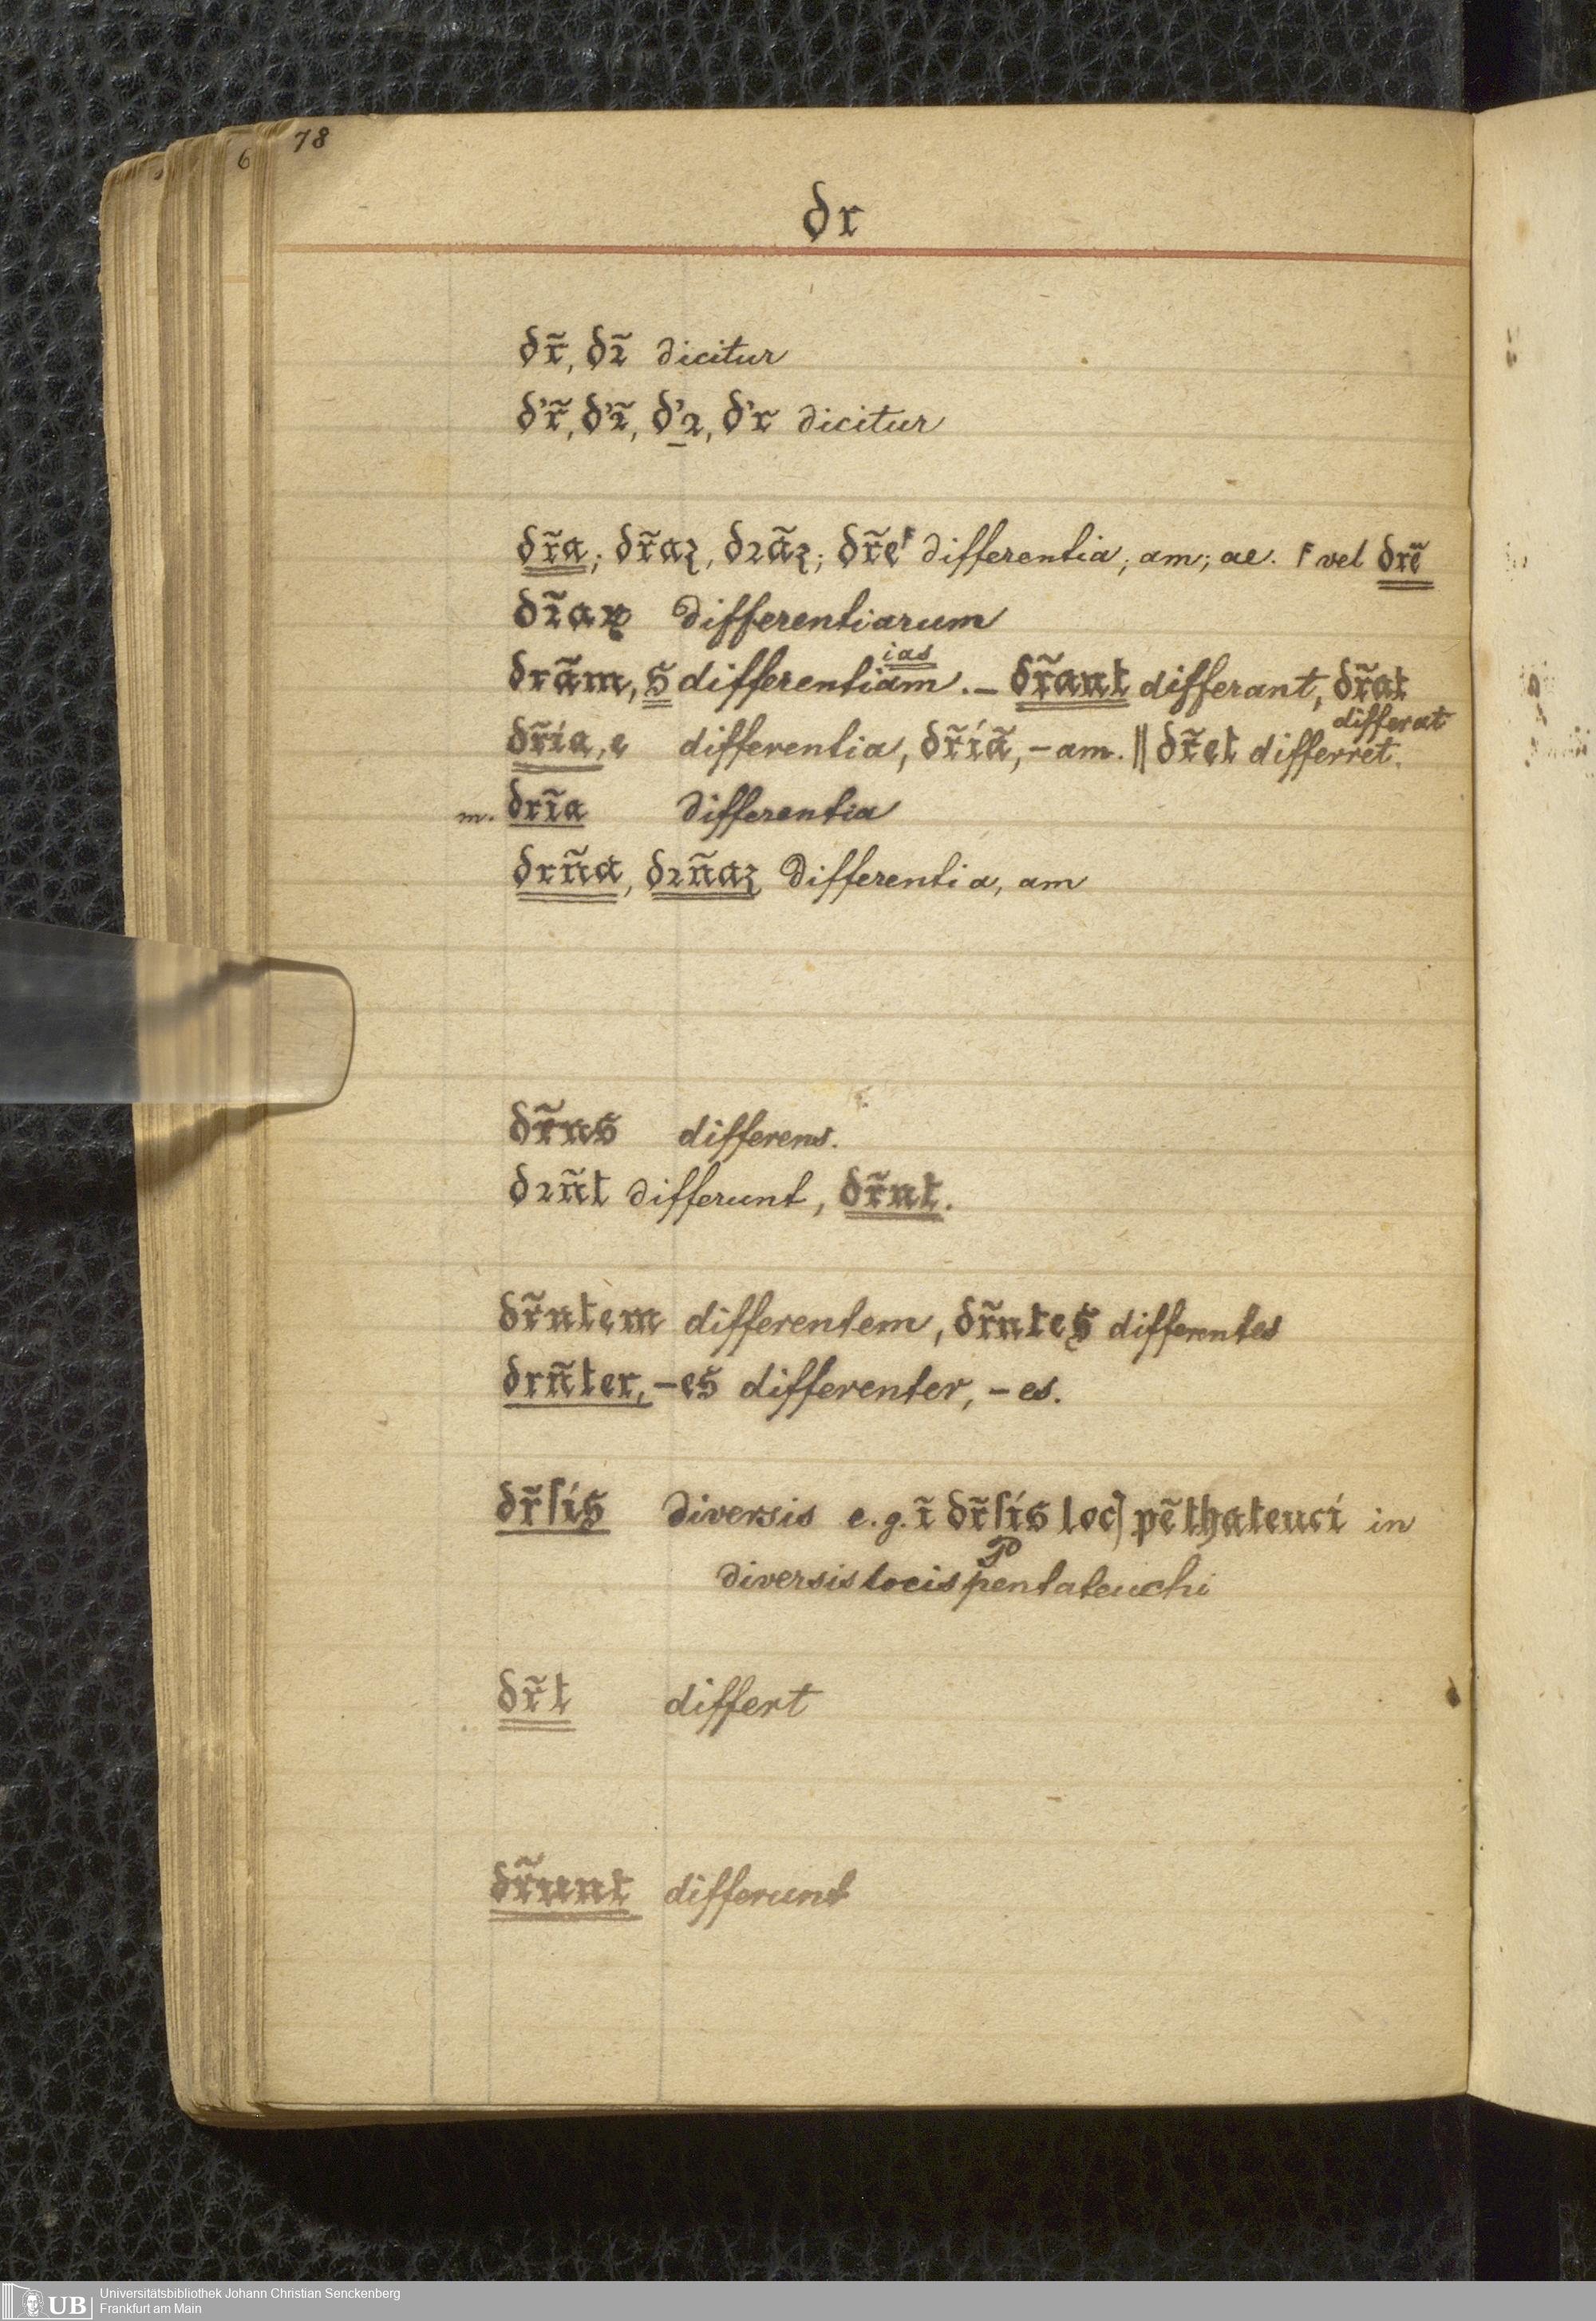 6 78
dr
dr̃, dꝛ̃ dicitur
d'r̃, d'ꝛ̃, d'ꝛ, d'r dicitur
dr̃a; dr̃aȝ, dꝛãȝ; dr̃e⸢ differentia; am; ae. ⸢ vel drẽ
dꝛ̃aꝝ differentiarum
drãm, s differentiam ias. – dr̃ant differant, dr̃at
differat
dr̃ia, e differentia, dr̃iã, – am. || dr̃et differret.
m. drĩa differentia
drña, dꝛñaȝ differentia, am
dr̃ns differens.
dꝛñt differunt, dr̃nt.
dr̃ntem differentem, dr̃ntes differentes
drñter, – es differenter, – es.
dr̃ſis diversis e.g. ĩ dr̃ſis locꝭ pẽthateuci in
diversis locis Pentateuchi
dr̃t differt
dr̃unt differunt
UB Universitätsbibliothek Johann Christian Senckenberg
Frankfurt am Main